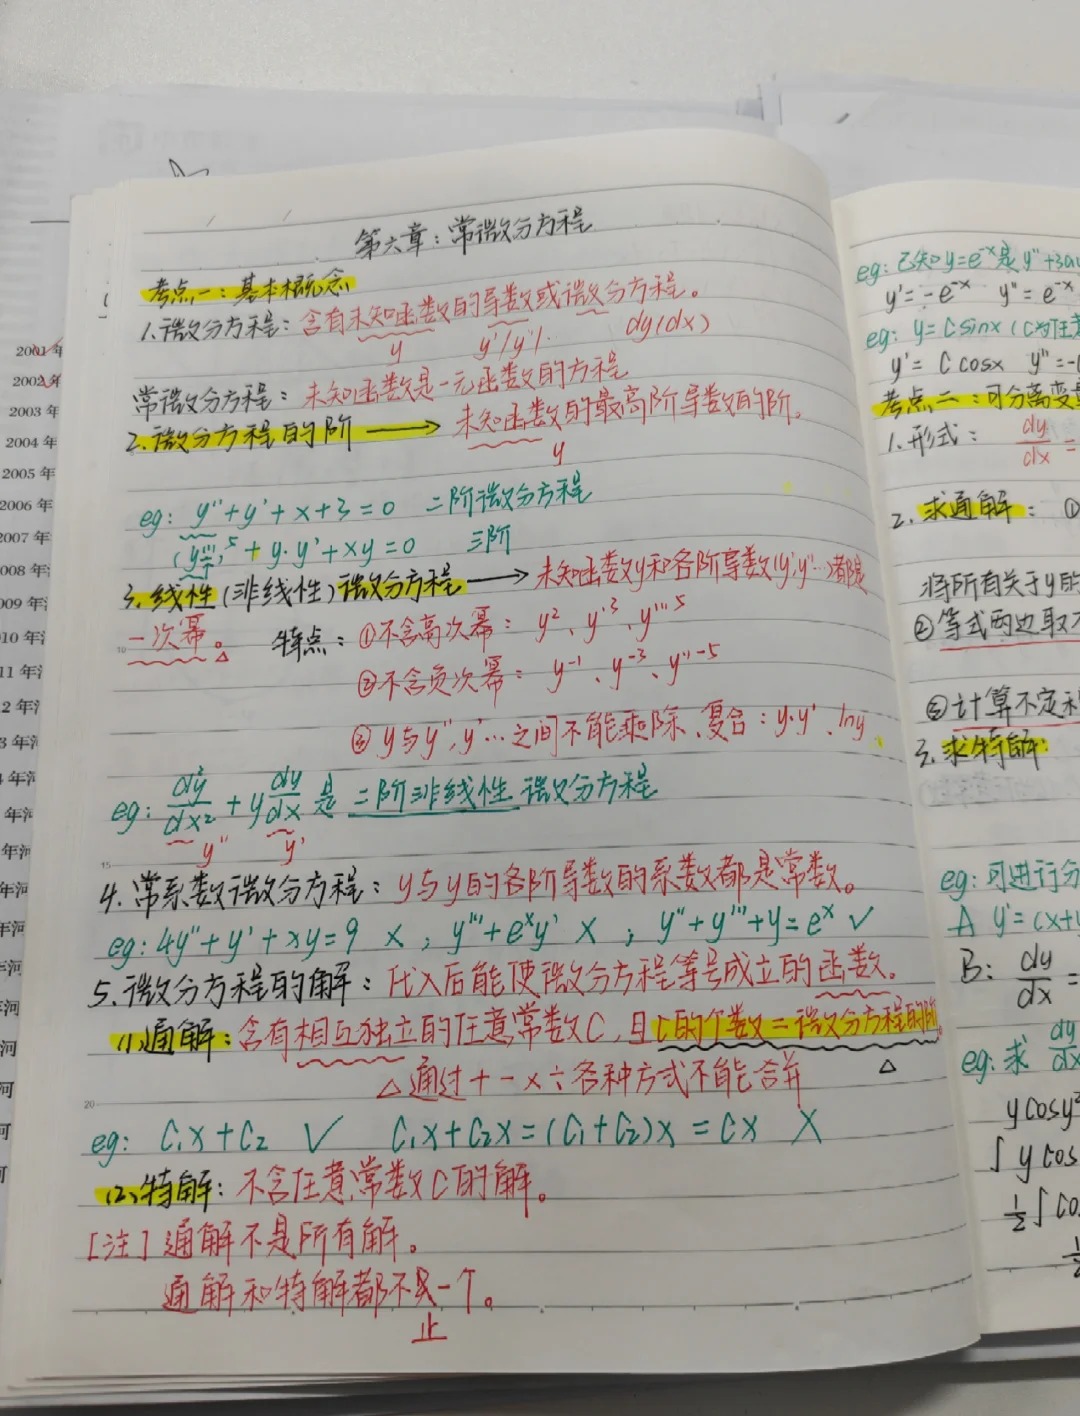 第六章：常微分方程
考点一：基本概念
1.微分方程：含有未知函数的导数或微分方程。
y y'/y''/·· dy(dx)
常微分方程：未知函数是一元函数的方程
2.微分方程的阶 ⟶ 未知函数的最高阶导数的阶。
y
eg: y''+y'+x+3=0 二阶微分方程
(y''')⁵+y·y'+xy=0 三阶
3.线性(非线性)微分方程 ⟶ 未知函数y和各阶导数(y',y''…)都是
一次幂。 特点：①不含高次幂：y²、y'³、y'''⁵
②不含负次幂：y⁻¹、y'⁻³、y''⁻⁵
③y与y'',y'…之间不能乘除、复合：y·y'、lny
eg: d²y/dx² + y dy/dx 是 二阶非线性 微分方程
y'' y'
4.常系数微分方程：y与y的各阶导数的系数都是常数。
eg: 4y''+y'+xy=9 ×，y'''+eˣy' ×；y''+y'''+y=eˣ ✓
5.微分方程的解：代入后能使微分方程等号成立的函数。
(1)通解：含有相互独立的任意常数C，且C的个数=微分方程的阶。
△通过+－×÷各种方式不能合并 △
eg: C₁x+C₂ ✓ C₁x+C₂x=(C₁+C₂)x=Cx ×
(2)特解：不含任意常数C的解。
[注]通解不是所有解。
通解和特解都不只一个。
止
eg: 已知y=e⁻ˣ是y''+3
y'=-e⁻ˣ y''=e⁻ˣ
eg: y=Csinx(C为任意
y'=Ccosx y''=-
考点二：可分离变量
1.形式：dy/dx=
2.求通解：①
将所有关于y的
②等式两边取不
③计算不定积
3.求特解：
eg: 可进行分
A y'=(x+y
B: dy/dx=
eg: 求 dy/dx
ycosy²
∫ycos
½∫co
2001年
2002年
2003年
2004年
2005年
2006年
2007年
08年
09年
10年
11年
2年
3年
年河
年河
年河
年河
年河
河
河
河
河
10
15
20